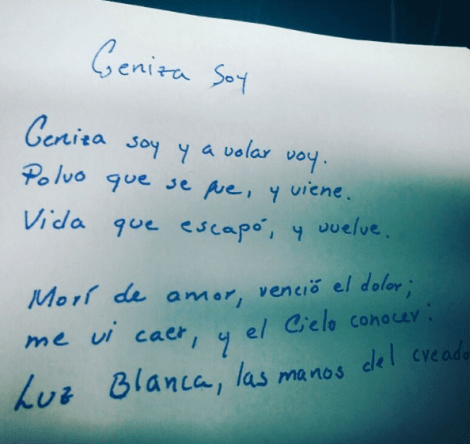 Ceniza Soy
Ceniza soy y a volar voy.
Polvo que se fue, y viene.
Vida que escapó, y vuelve.
Morí de amor, venció el dolor;
me vi caer, y el Cielo conocer:
Luz Blanca, las manos del creado